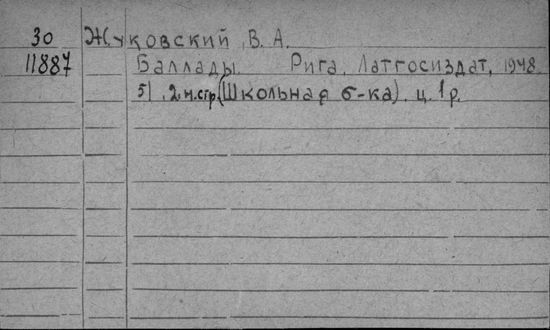 30 Жуковский, В. А.
11887 Баллады. Рига. Латгосиздат, 1948.
51, 2 н.стр. (Школьная б-ка). ц. 1 р.